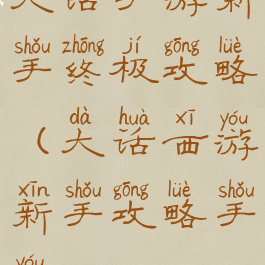 大话手游新
shǒu zhōng jí gōng lüè
手终极攻略
dà huà xī yóu
（大话西游
xīn shǒu gōng lüè shǒu
新手攻略手
yóu